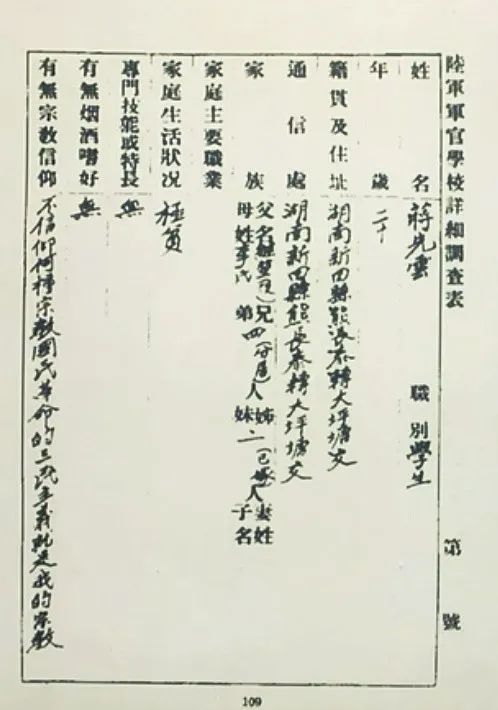 陸軍軍官學校詳細調查表 第 號
姓名 蔣先雲 職別 學生
年歲 二十
籍貫及住址 湖南新田縣 轉大坪塘交
通信處 湖南新田縣 長泰轉大坪塘交
家族 父名 兄 人 姊 人 妻姓
母姓李氏 弟 四 妹 二 子名
家庭主要職業
家庭生活狀况 極貧
專門技能或特長 無
有無烟酒嗜好 無
有無宗教信仰 不信仰何種宗教國民革命的三民主義就是我的宗教
109